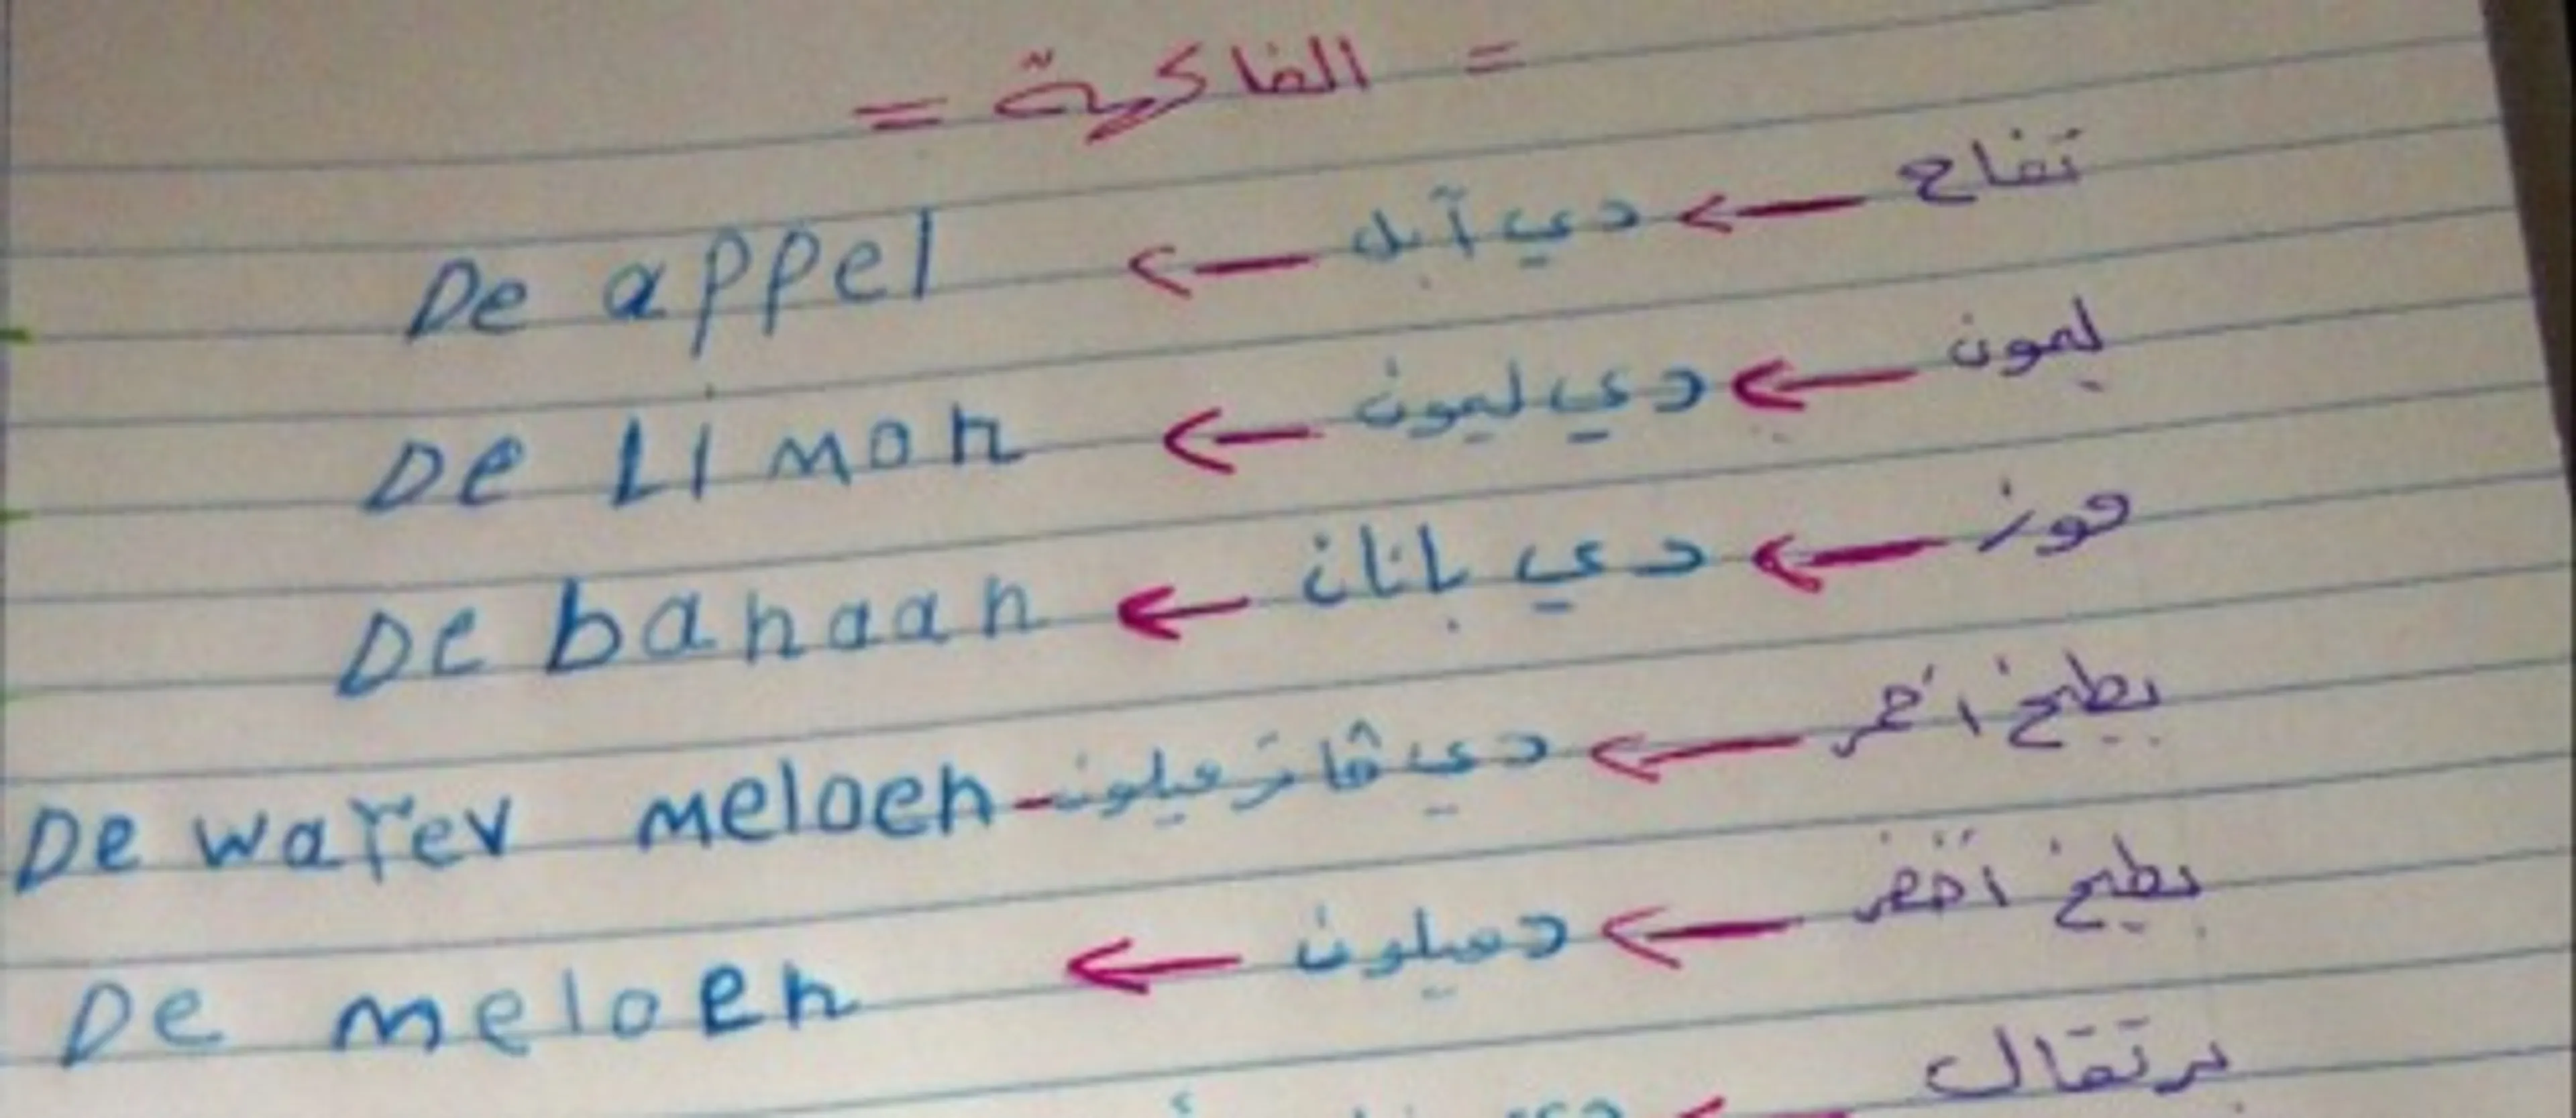 = الفاكهة =
تفاح ← دي آبل ← De appel
ليمون ← دي ليمون ← De Limon
موز ← دي بانان ← De banaan
بطيخ أحمر ← دي ڤاتر ميلون - De water meloen
بطيخ أخضر ← دميلون ← De meloen
برتقال ←